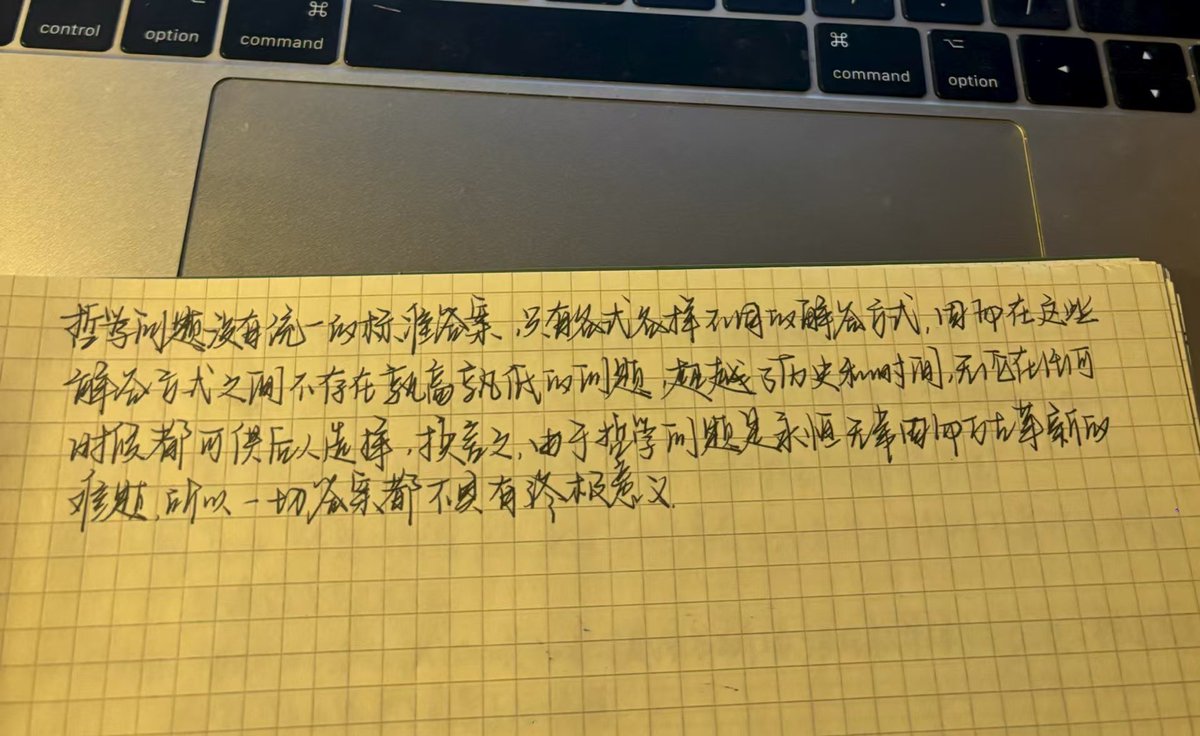 control option command command option
哲学问题没有统一的标准答案，只有各式各样不同的解答方式，因而在这些
解答方式之间不存在孰高孰低的问题，超越了历史和时间，无论在任何
时候都可供后人选择，换言之，由于哲学问题是永恒无常因而万古革新的
难题，所以一切答案都不具有终极意义.